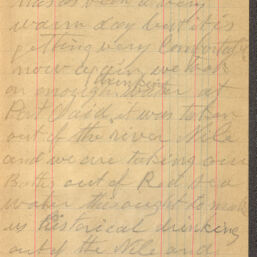 has been a very
warm day but it is
getting very comfortable
now again, we took
on enough drinking water at
Port Said, it was taken
out of the river Nile
and we are taking our
Baths out of Red sea
water this ought to make
us historical drinking
out of the Nile and